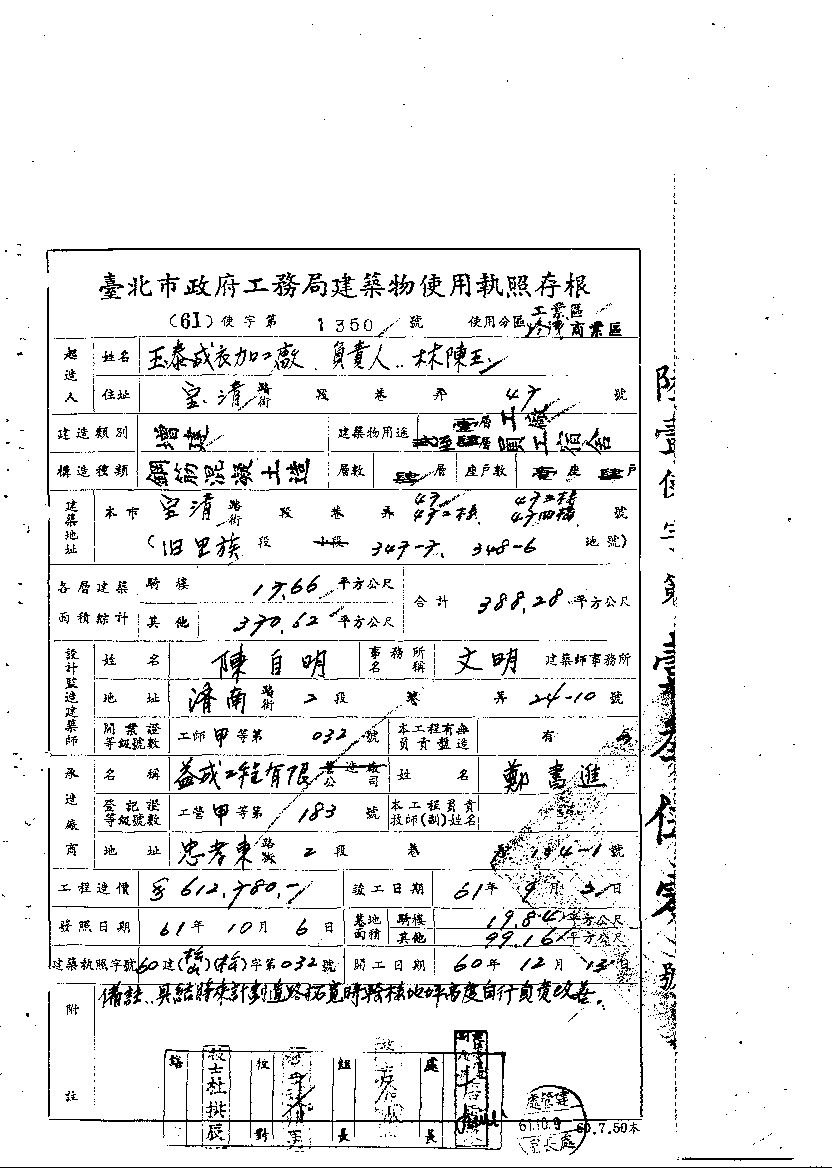 臺北市政府工務局建築物使用執照存根
(61)使字第 1350 號 使用分區 工業區 商業區
起造人 姓名 玉泰成衣加工廠 負責人..林陳玉
住址 寶清 路街 段 巷 弄 47 號
建造類別 增建 建築物用途 壹層工廠 貳至肆層員工宿舍
構造種類 鋼筋混凝土造 層數 肆層 座戶數 壹座 肆戶
建築地址 本市 寶清 路街 段 巷 弄 47 47二樓 47三樓 47四樓 號
(旧里族段 小段 347-7、348-6 地號)
各層建築面積綜計 騎樓 17.66 平方公尺 合計 388.28 平方公尺
其他 370.62 平方公尺
設計監造建築師 姓名 陳自明 事務所名稱 文明 建築師事務所
地址 濟南 路街 2段 巷 弄 24-10 號
開業證等級號數 工師甲等第 032 號 本工程有無負責監造 有
承造廠商 名稱 益成工程有限 營造廠公司 姓名 鄭書進
登記證等級號數 工營甲等第 183 號 本工程負責技師(副)姓名
地址 忠孝東 路街 2段 巷 弄 134-1 號
工程造價 $612,780.- 竣工日期 61年 9月 21日
發照日期 61年 10月 6日 基地面積 騎樓 19.84 平方公尺
其他 99.16 平方公尺
建築執照字號 60建( )( )字第032號 開工日期 60年 12月 13日
附註 備註:具結將來計劃道路拓寬時騎樓地坪高度自行負責改善。
技士杜拱辰 校對 組長 處長
建管處
61.10.9
60.7.50本